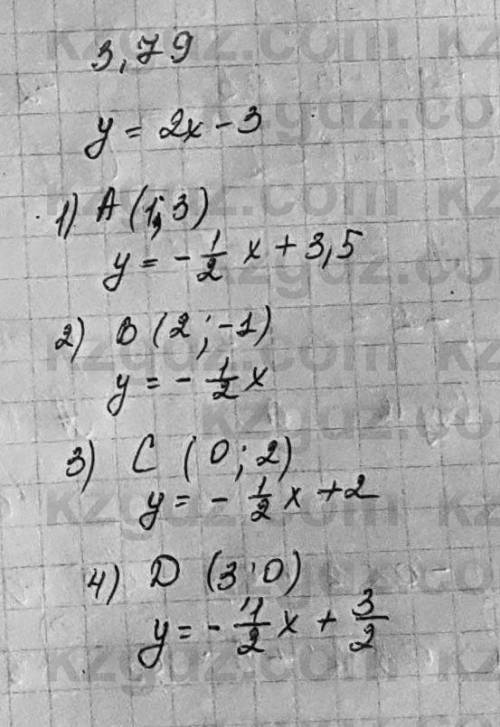 3,79
y = 2x - 3
1) A (1; 3)
y = - 1/2 x + 3,5
2) B (2 ; -1)
y = - 1/2 x
3) C ( 0 ; 2)
y = - 1/2 x + 2
4) D (3 ; 0)
y = - 1/2 x + 3/2
kzgdz.com